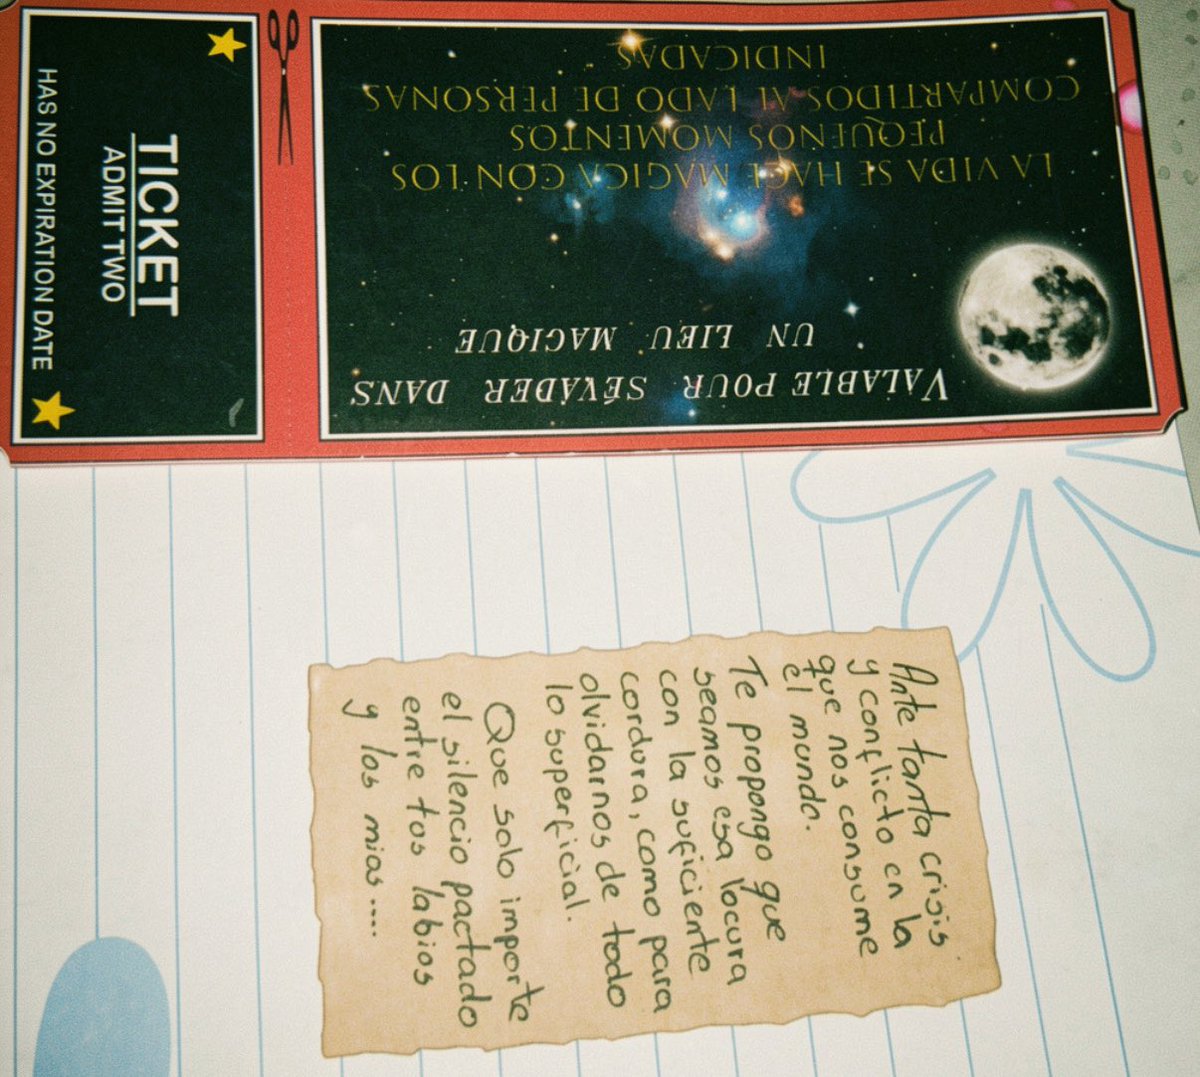 VALABLE POUR SÉVADER DANS
UN LIEU MAGIQUE
LA VIDA SE HACE MAGICA CON LOS
PEQUENOS MOMENTOS
COMPARTIDOS AL LADO DE PERSONAS
INDICADAS
TICKET
ADMIT TWO
HAS NO EXPIRATION DATE
Ante tanta crisis
y conflicto en la
que nos consume
el mundo.
Te propongo que
seamos esa locura
con la suficiente
cordura, como para
olvidarnos de todo
lo superficial.
Que solo importe
el silencio pactado
entre tos labios
y los mios.....